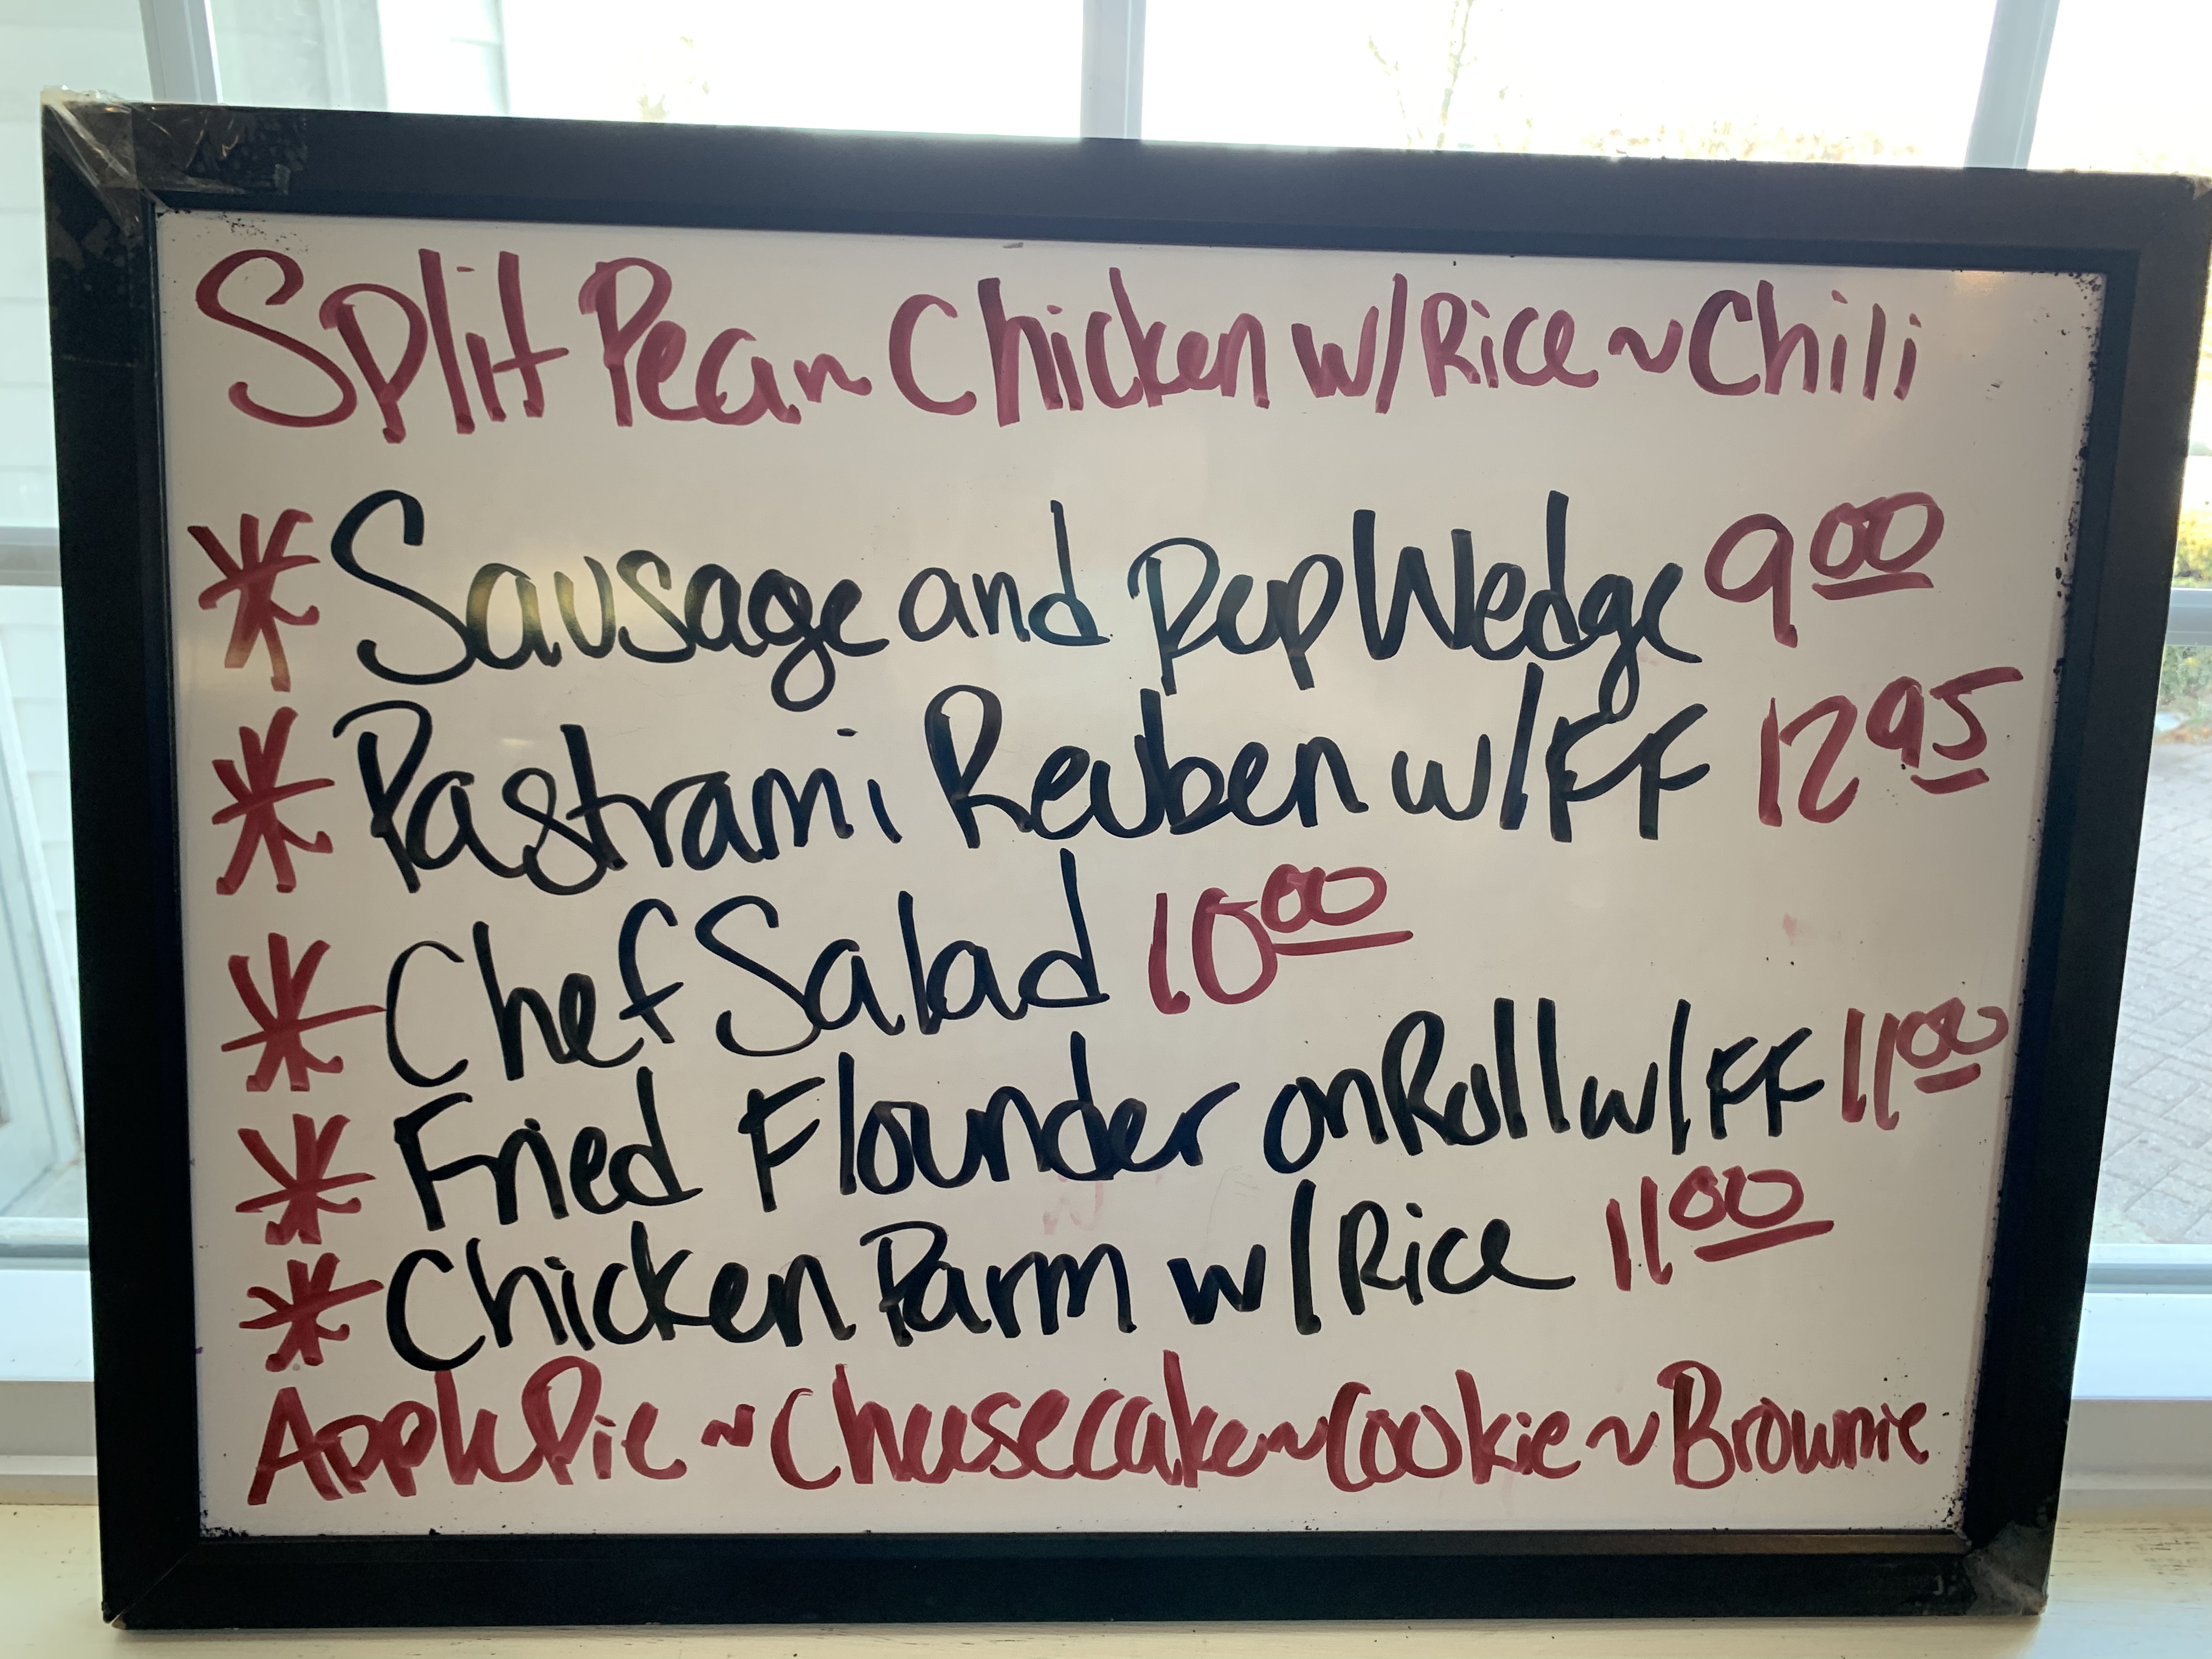 Split Pea ~ Chicken w/Rice ~ Chili
* Sausage and Pep Wedge 9 00
* Pastrami Reuben w/FF 12 95
* Chef Salad 10 00
* Fried Flounder on Roll w/FF 11 00
* Chicken Parm w/Rice 11 00
Apple Pie ~ Cheesecake ~ Cookie ~ Brownie